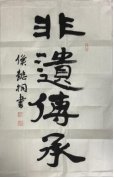 非遺傳承
侯懿桐書